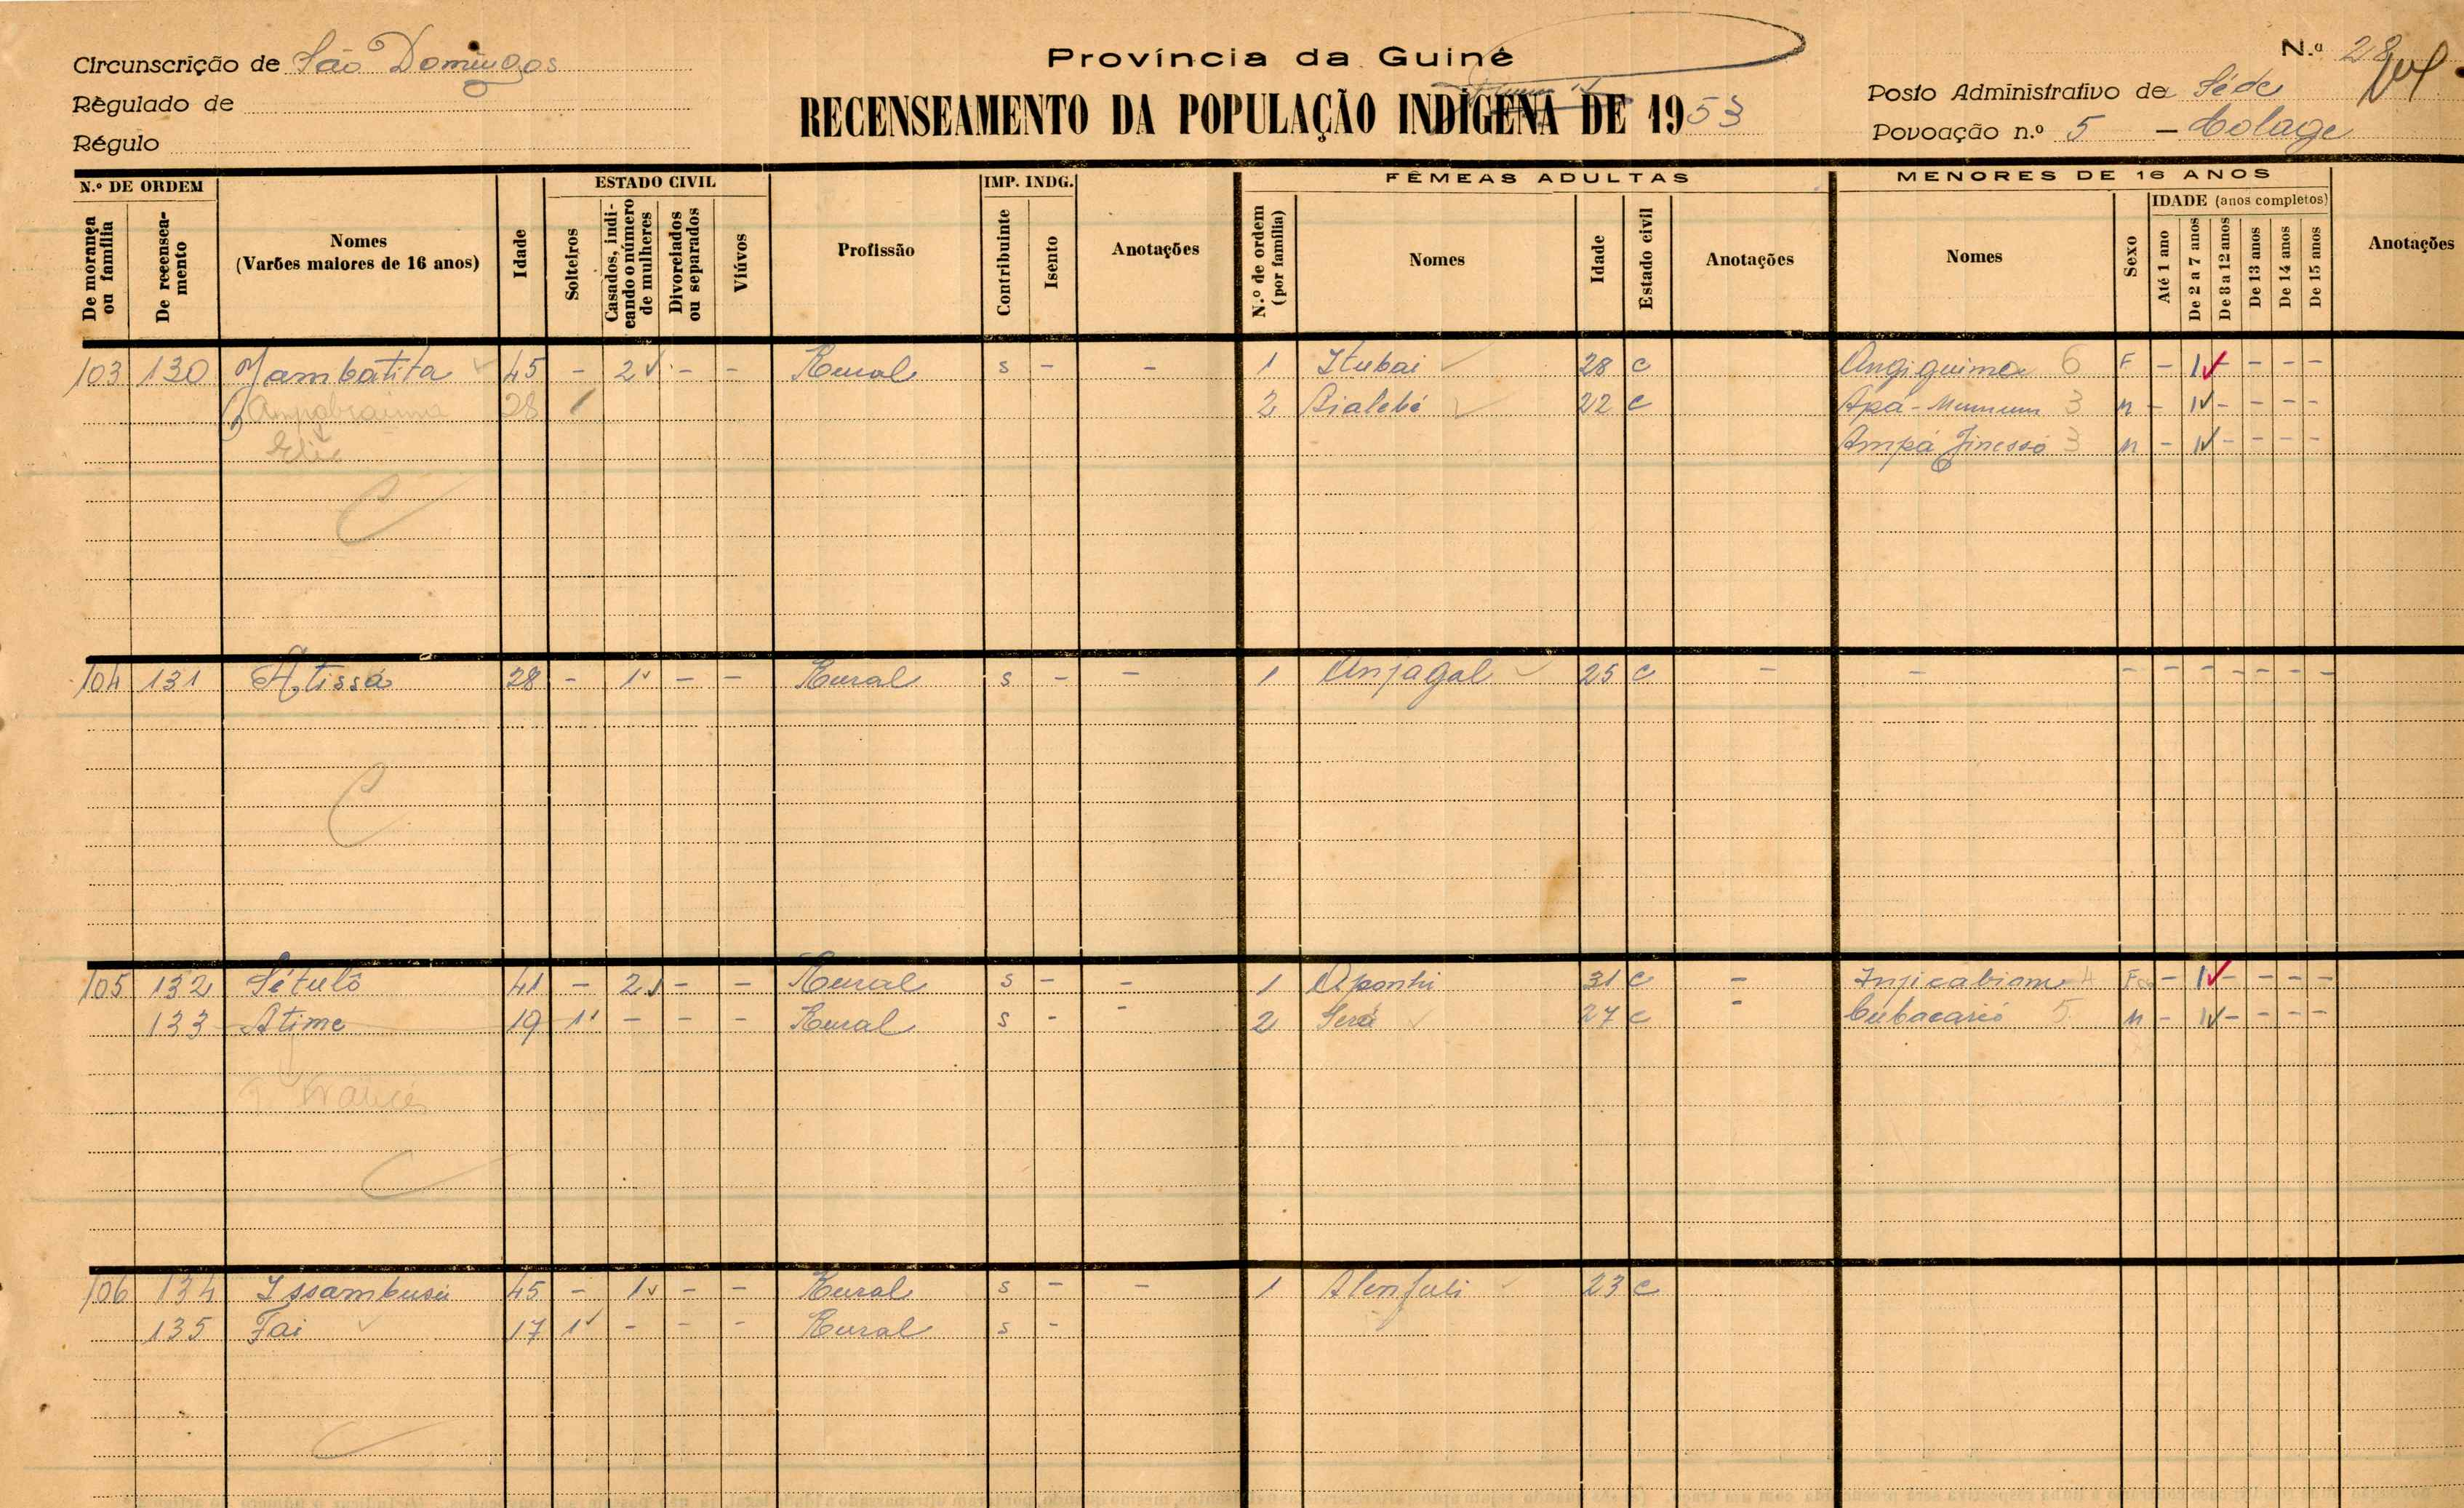 Circunscrição de São Domingos
Régulado de
Régulo
Província da Guiné
RECENSEAMENTO DA POPULAÇÃO INDÍGENA DE 1953
N.º 28
Posto Administrativo de Séde
Povoação n.º 5 — Colage
N.º DE ORDEM
De morança ou família
De recenseamento
Nomes
(Varões maiores de 16 anos)
Idade
ESTADO CIVIL
Solteiros
Casados, indicando o número de mulheres
Divorciados ou separados
Viúvos
Profissão
IMP. INDG.
Contribuinte
Isento
Anotações
FÊMEAS ADULTAS
N.º de ordem (por família)
Nomes
Idade
Estado civil
Anotações
MENORES DE 16 ANOS
Nomes
Sexo
IDADE (anos completos)
Até 1 ano
De 2 a 7 anos
De 8 a 12 anos
De 13 anos
De 14 anos
De 15 anos
Anotações
103 130 Jambatita 45 - 2 - - Rural s - - 1 Itubai 28 c Angiquime 6 F - 1 - - - -
28 2 Bialebé 22 c Apá-Mumum 3 M - 1 - - - -
Ampá Jinessó 3 M - 1 - - - -
104 131 Atissá 28 - 1 - - Rural s - - 1 Anjagal 25 c - - - - - - - - -
105 132 Sétulô 41 - 2 - - Rural s - - 1 Aponhi 31 c - Injicabiom 4 F - 1 - - - -
133 Atime 19 1 - - - Rural s - - 2 Será 27 c - Cubacarió 5 M - 1 - - - -
106 134 Issambusu 45 - 1 - - Rural s - - 1 Alenjuli 23 c
135 Fai 17 1 - - - Rural s -